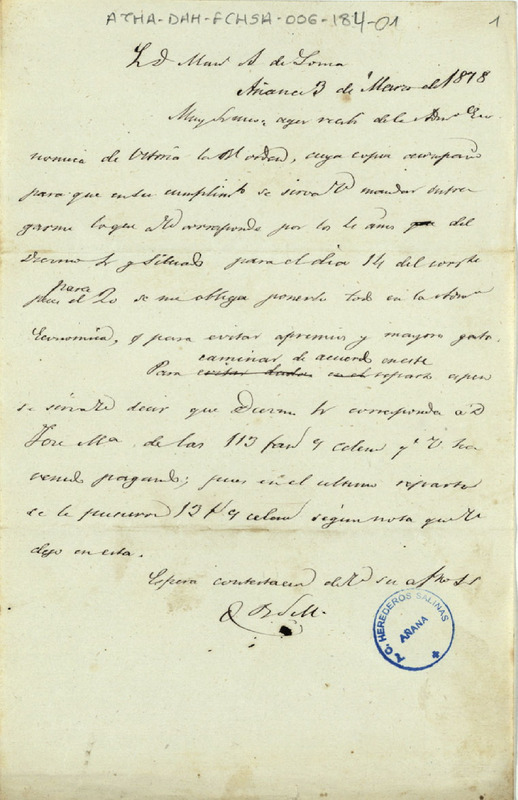 ATHA-DAH-FCHSA-006-184-01
1
Manl A de Loma
Añana 3 de Marzo del 1878
Muy Sr mio: ayer recibi de la Admon Eco
nomica de Vitoria la Rl orden, cuya copia acompaño
para que en su cumplimto se sirva Vd mandar entre
garme lo que a Vd corresponde por los 4 años que del
Diezmo y Situado para el dia 14 del corrte
para
pues el 20 se me obliga ponerlo todo en la Admon
Economica, y para evitar apremios y mayores gastos.
caminar de acuerdo en este
Para evitar dudas en el reparto espero
se sirva Vd decir que Diezmo corresponda a D
Jose Ma de las 113 fans 9 celem y V ha
venido pagando; pues en el ultimo reparto
se le pusieron 13 f 9 celem segun nota que Vd
dejo en esta.
Espera contestacion de Vd su afmo SS
Q B S M
T. C. HEREDEROS SALINAS
AÑANA